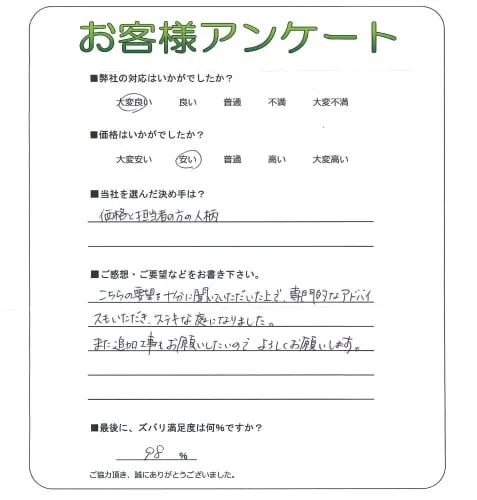 お客様アンケート
■弊社の対応はいかがでしたか?
大変良い 良い 普通 不満 大変不満
■価格はいかがでしたか?
大変安い 安い 普通 高い 大変高い
■当社を選んだ決め手は?
価格と担当者の方の人柄
■ご感想・ご要望などをお書き下さい。
こちらの要望を十分に聞いていただいた上で、専門的なアドバイ
スもいただき、ステキな庭になりました。
また追加工事もお願いしたいので よろしくお願いします。
■最後に、ズバリ満足度は何%ですか?
98 %
ご協力頂き、誠にありがとうございました。